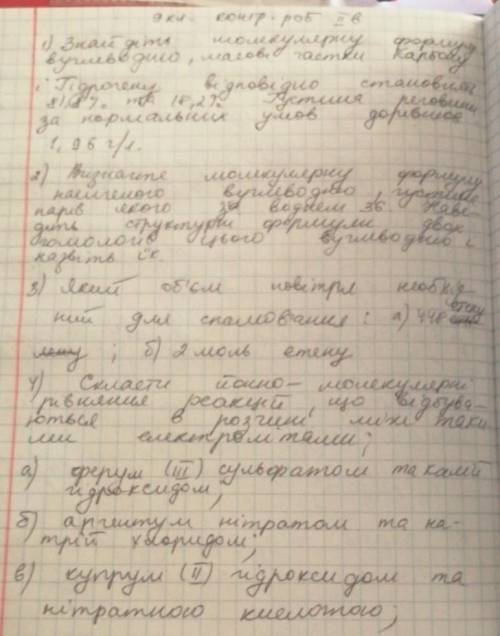 9 кл. контр. роб II в
1) Знайдіть молекулярну формулу
вуглеводню, масові частки Карбону
і Гідрогену відповідно становили
81,8% та 18,2%. Густина речовини
за нормальних умов дорівнює
1,96 г/л.
2) Визначте молекулярну формулу
насиченого вуглеводню, густина
парів якого за воднем 36. Наве
діть структурні формули двох
гомологів цього вуглеводню і
назвіть їх.
3) Який об'єм повітря необхід
ний для спалювання: а) 448 етену
; б) 2 моль етену
4) Скласти йонно-молекулярні
рівняння реакцій, що відбува-
ються в розчині між таки
ми електролітами;
а) ферум (III) сульфатом та калій
гідроксидом;
б) аргентум нітратом та на-
трій хлоридом;
в) купрум (II) гідроксидом та
нітратною кислотою;